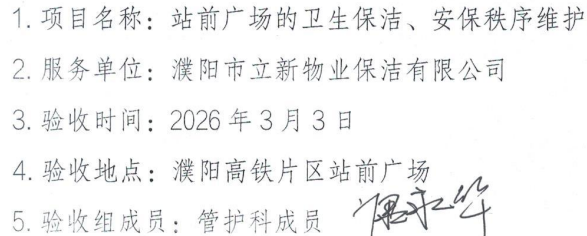 1. 项目名称：站前广场的卫生保洁、安保秩序维护
2. 服务单位：濮阳市立新物业保洁有限公司
3. 验收时间：2026 年 3 月 3 日
4. 验收地点：濮阳高铁片区站前广场
5. 验收组成员：管护科成员